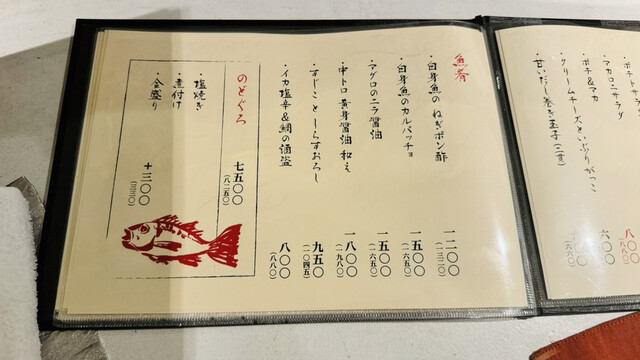 ポテトサ
マカロニサラダ
六〇〇
ポテ&マカ
八〇〇
クリームチーズといぶりがっこ
甘いだし巻き玉子(二貫)
魚肴
・白身魚の ねぎポン酢
一二〇〇
(一三二〇)
・白身魚のカルパッチョ
一五〇〇
(一六五〇)
・マグロのニラ醤油
一五〇〇
(一六五〇)
・中トロ 黄身醤油 和え
一八〇〇
(一九八〇)
・すじことしらすおろし
九五〇
(一〇四五)
・イカ塩辛&鯛の酒盗
八〇〇
(八八〇)
のどぐろ
七五〇〇
(八二五〇)
・塩焼き
・煮付け
・舎盛り
+三〇〇
(三三〇)